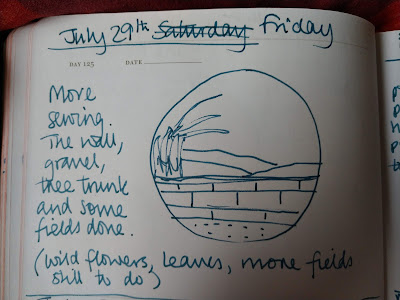 July 29th Saturday Friday
DAY 125 DATE
More
sewing.
The wall,
gravel,
tree trunk
and some
fields done.
(wild flowers, leaves, more fields
still to do)